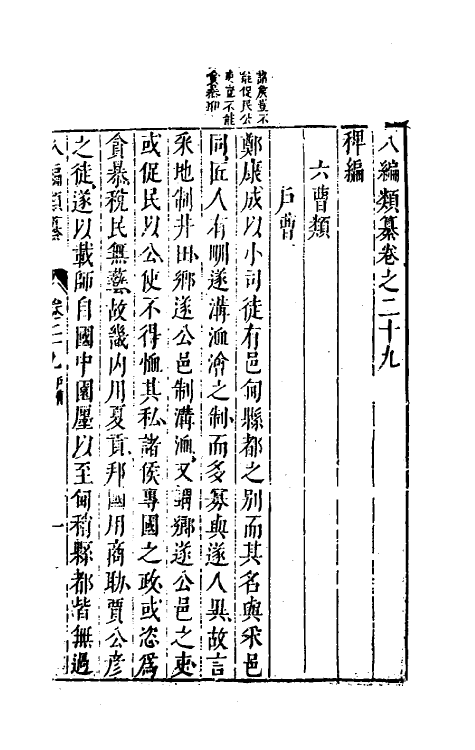 八編類纂卷之二十九
稗編
六曹類
戶曹
鄭康成以小司徒有邑甸縣都之别而其名與采邑
同匠人有𤰝遂溝洫澮之制而多寡與遂人異故言
采地制井田鄉遂公邑制溝洫又謂鄉遂公邑之吏
或促民以公使不得恤其私諸侯專國之政或恣爲
貪暴稅民無藝故畿内用夏貢邦國用商助賈公彦
之徒遂以載師自國中園廛以至甸稍縣都皆無過
諸侯豈不
能促民公
吏豈不能
貪暴
八編類纂
卷二十九
戶曹
一